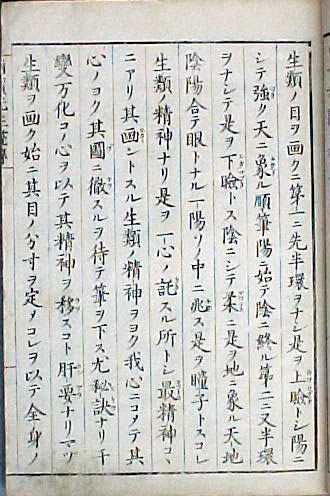 生類ノ目ヲ画クニ第一ニ先半環ヲナシ是ヲ上瞼トシ陽ニ
シテ強ク天ニ象ル順筆陽ニ始テ陰ニ終ル第二ニ又半環
ヲナシテ是ヲ下瞼トス陰ニシテ柔ニ是ヲ地ニ象ル天地
陰陽合テ眼トナル一陽ソノ中ニ兆ス是ヲ瞳子トスコレ
生類ノ精神ナリ是ヲ一心ノ託スル所トシ最精神コヽ
ニアリ其画ントスル生類ノ精神ヲヨク我心ニコメテ其
心ノヨク其圖ニ徹スルヲ待テ筆ヲ下ス尤秘訣ナリ千
變万化コノ心ヲ以テ其精神ヲ移スコト肝要ナリマヅ
生類ヲ画ク始ニ其目ノ分寸ヲ定メコレヲ以テ全身ノ